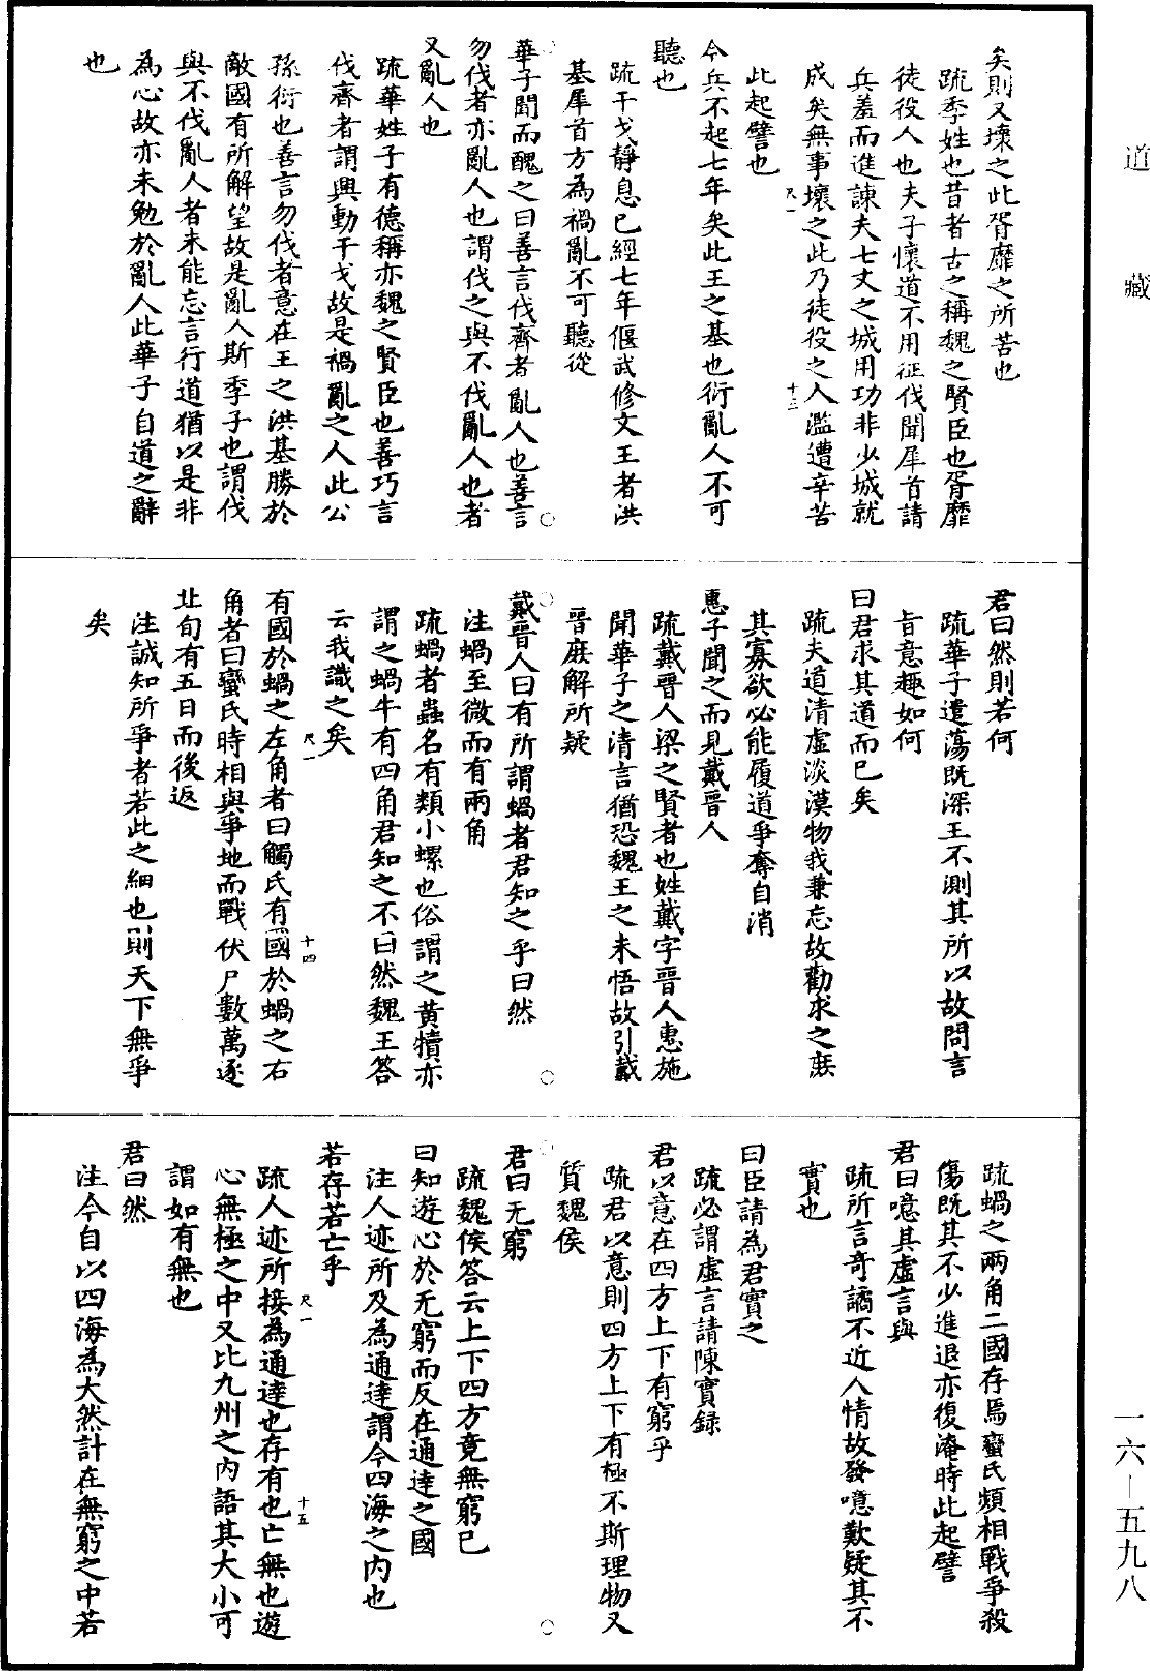 道藏
矣則又壞之此胥靡之所苦也
疏季姓也昔者古之稱魏之賢臣也胥靡
徒役人也夫子懷道不用征伐聞犀首請
兵羞而進諫夫七丈之城用功非少城就
成矣無事壞之此乃徒役之人濫遭辛苦
尺一
十三
此起譬也
今兵不起七年矣此王之基也衍亂人不可
聽也
疏干戈靜息已經七年偃武修文王者洪
基犀首方為禍亂不可聽從
華子聞而醜之曰善言伐齊者亂人也善言
勿伐者亦亂人也謂伐之與不伐亂人也者
又亂人也
疏華姓子有德稱亦魏之賢臣也善巧言
伐齊者謂興動干戈故是禍亂之人此公
孫衍也善言勿伐者意在王之洪基勝於
敵國有所解望故是亂人斯季子也謂伐
與不伐亂人者未能忘言行道猶以是非
為心故亦未勉於亂人此華子自道之辭
也
君曰然則若何
疏華子遣蕩既深王不測其所以故問言
旨意趣如何
曰君求其道而已矣
疏夫道清虛淡漠物我兼忘故勸求之庶
其寡欲必能履道爭奪自消
惠子聞之而見戴晉人
疏戴晉人梁之賢者也姓戴字晉人惠施
聞華子之清言猶恐魏王之未悟故引戴
晉庶解所疑
戴晉人曰有所謂蝸者君知之乎曰然
注蝸至微而有兩角
疏蝸者蟲名有類小螺也俗謂之黃犢亦
謂之蝸牛有四角君知之不曰然魏王答
云我識之矣
有國於蝸之左角者曰觸氏有國於蝸之右
尺一
十四
角者曰蠻氏時相與爭地而戰伏尸數萬逐
北旬有五日而後返
注誠知所爭者若此之細也則天下無爭
矣
疏蝸之兩角二國存焉蠻氏頻相戰爭殺
傷既其不少進退亦復淹時此起譬
君曰噫其虛言與
疏所言奇譎不近人情故發噫歎疑其不
實也
曰臣請為君實之
疏必謂虛言請陳實録
君以意在四方上下有窮乎
疏君以意則四方上下有極不斯理物又
質魏侯
君曰无窮
疏魏侯答云上下四方竟無窮已
曰知遊心於无窮而反在通達之國
注人迹所及為通達謂今四海之內也
若存若亡乎
疏人迹所接為通達也存有也亡無也遊
尺一
十五
心無極之中又比九州之內語其大小可
謂如有無也
君曰然
注今自以四海為大然計在無窮之中若
一六—五九八